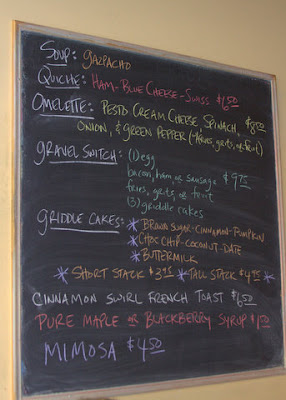 SOUP: GAZPACHO
QUICHE: HAM-BLUE CHEESE-SWISS $6.50
OMELETTE: PESTO CREAM CHEESE, SPINACH, $8.50
ONION, & GREEN PEPPER (+fries, grits, or fruit)
GRAVEL SWITCH: (1) egg
bacon, ham, or sausage $9.75
fries, grits, or fruit
(3) griddle cakes
GRIDDLE CAKES: * BROWN SUGAR-CINNAMON-PUMPKIN
* CHOC CHIP-COCONUT-DATE
* BUTTERMILK
* SHORT STACK $3.95 * TALL STACK $4.95 *
CINNAMON SWIRL FRENCH TOAST $6.50
PURE MAPLE OR BLACKBERRY SYRUP $1.50
MIMOSA $4.50